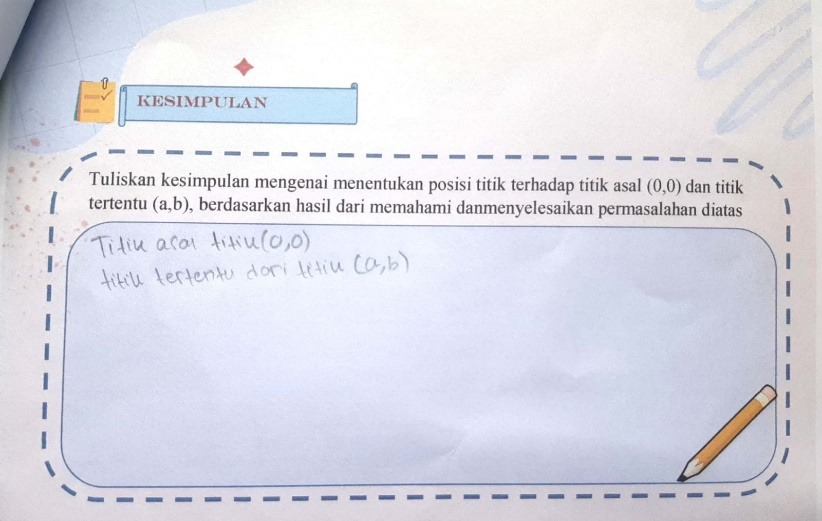 KESIMPULAN
Tuliskan kesimpulan mengenai menentukan posisi titik terhadap titik asal (0,0) dan titik
tertentu (a,b), berdasarkan hasil dari memahami danmenyelesaikan permasalahan diatas
Titik asal titik (0,0)
titik tertentu dari titik (a,b)